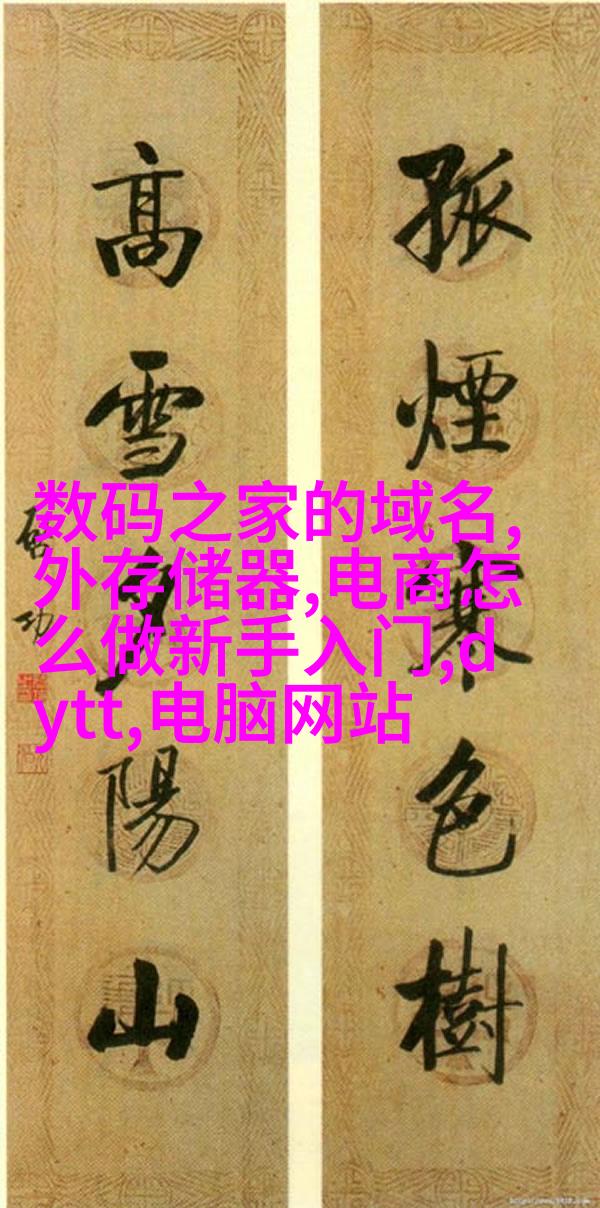 孤煙寒色樹
高雪陽山
功
数码之家的域名,
外存储器,电商怎
么做新手入门,d
ytt,电脑网站